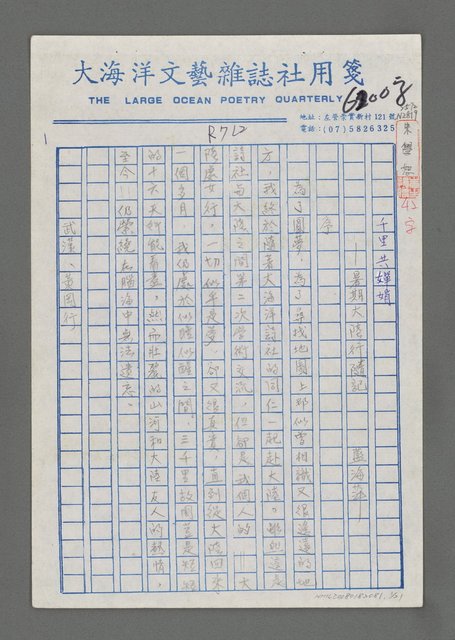 大海洋文藝雜誌社用箋
THE LARGE OCEAN POETRY QUARTERLY
6200字
地址：左營崇實新村121號
電話：(07)5826325
R712
千里共嬋娟
——暑期大陸行隨記 藍海萍
序
為了圓夢，為了尋找地圖上那似曾相識又很遙遠的地
方，我終於隨著大海洋詩社的同仁一起赴大陸。雖然這是
詩社與大陸之間第二次學術交流，但卻是我個人的——大
陸處女行，一切似乎是夢，卻又很真實，直到從大陸回來
一個多月，我仍處於似睡似醒之間，三千里故國豈是短短
的十六天所能看盡，然而壯麗的山河和大陸友人的熱情，
至今仍縈繞在腦海中無法遺忘。
武漢、黃岡行